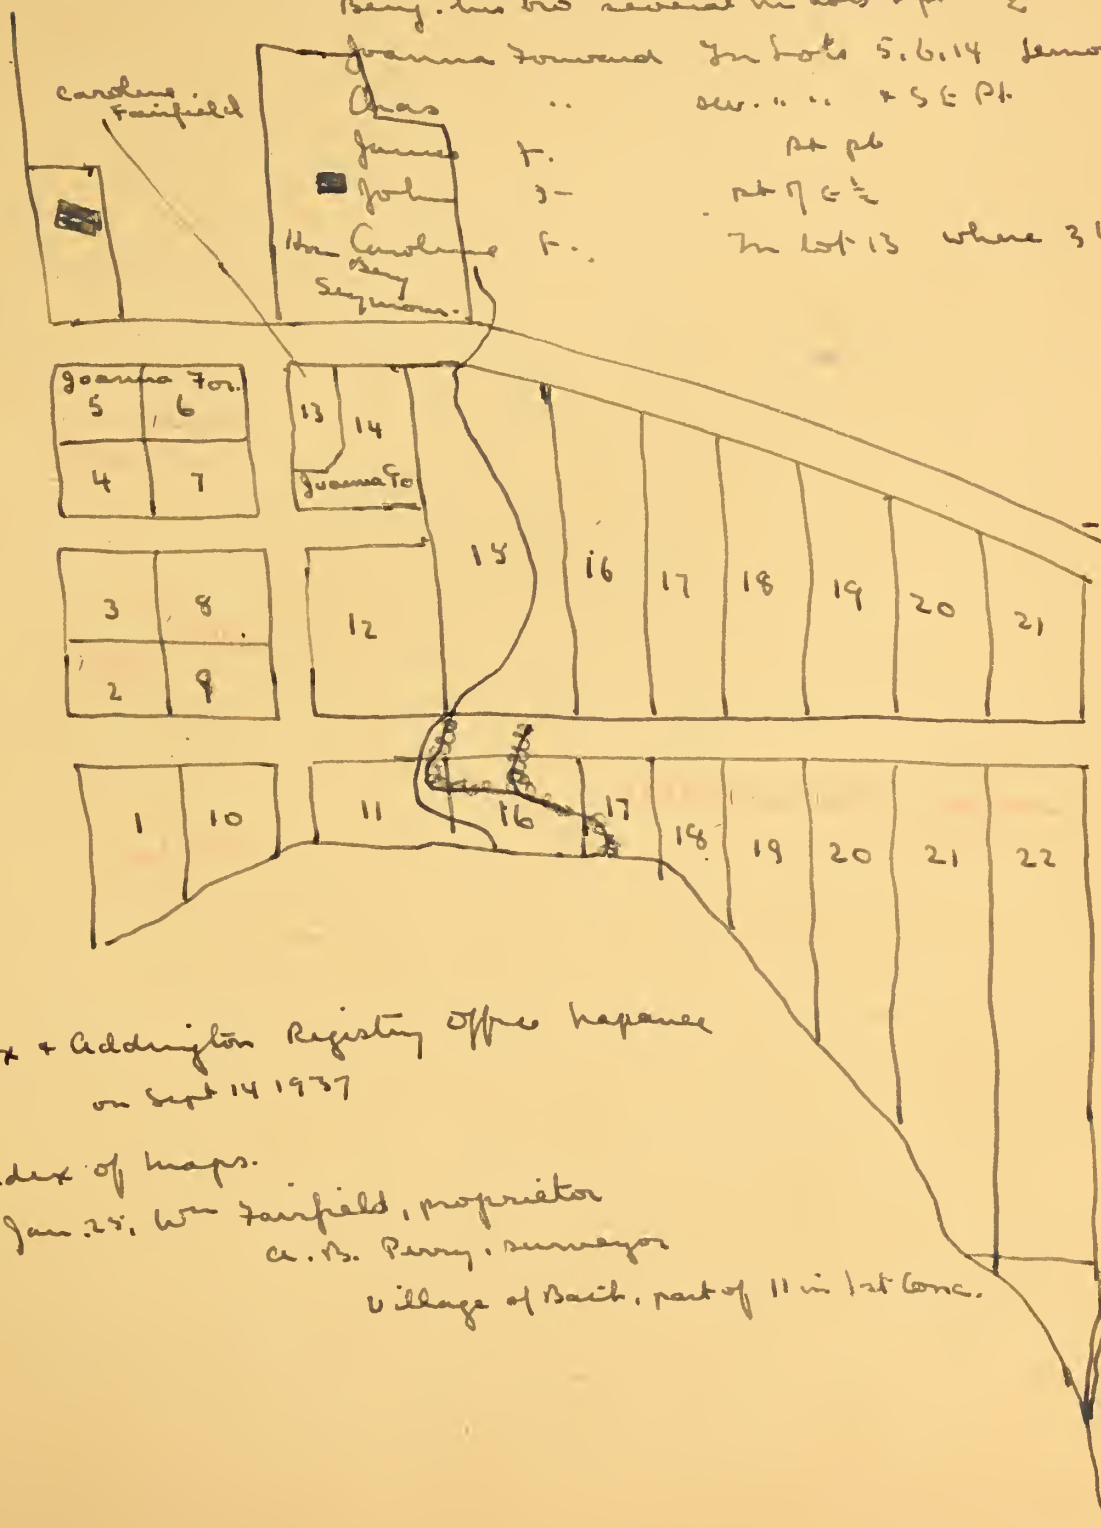 Joanna Forward In Lots 5, 6, 14
Chas " sev. " " + S E Pt.
James F. pt
John
Caroline F. In lot 13 where 3
Ben
Seymour.
Caroline
Fairfield
Joanna For.
5 6
4 7
13 14
Joanna Fo
3 8
2 9
12
15 16 17 18 19 20 21
1 10 11 16 17 18 19 20 21 22
x + Addington Registry Office Napanee
on Sept 14 1937
dex of maps.
Jan. 25, Wm Fairfield, proprietor
A. B. Perry, surveyor
Village of Bath, part of 11 in 1st Conc.